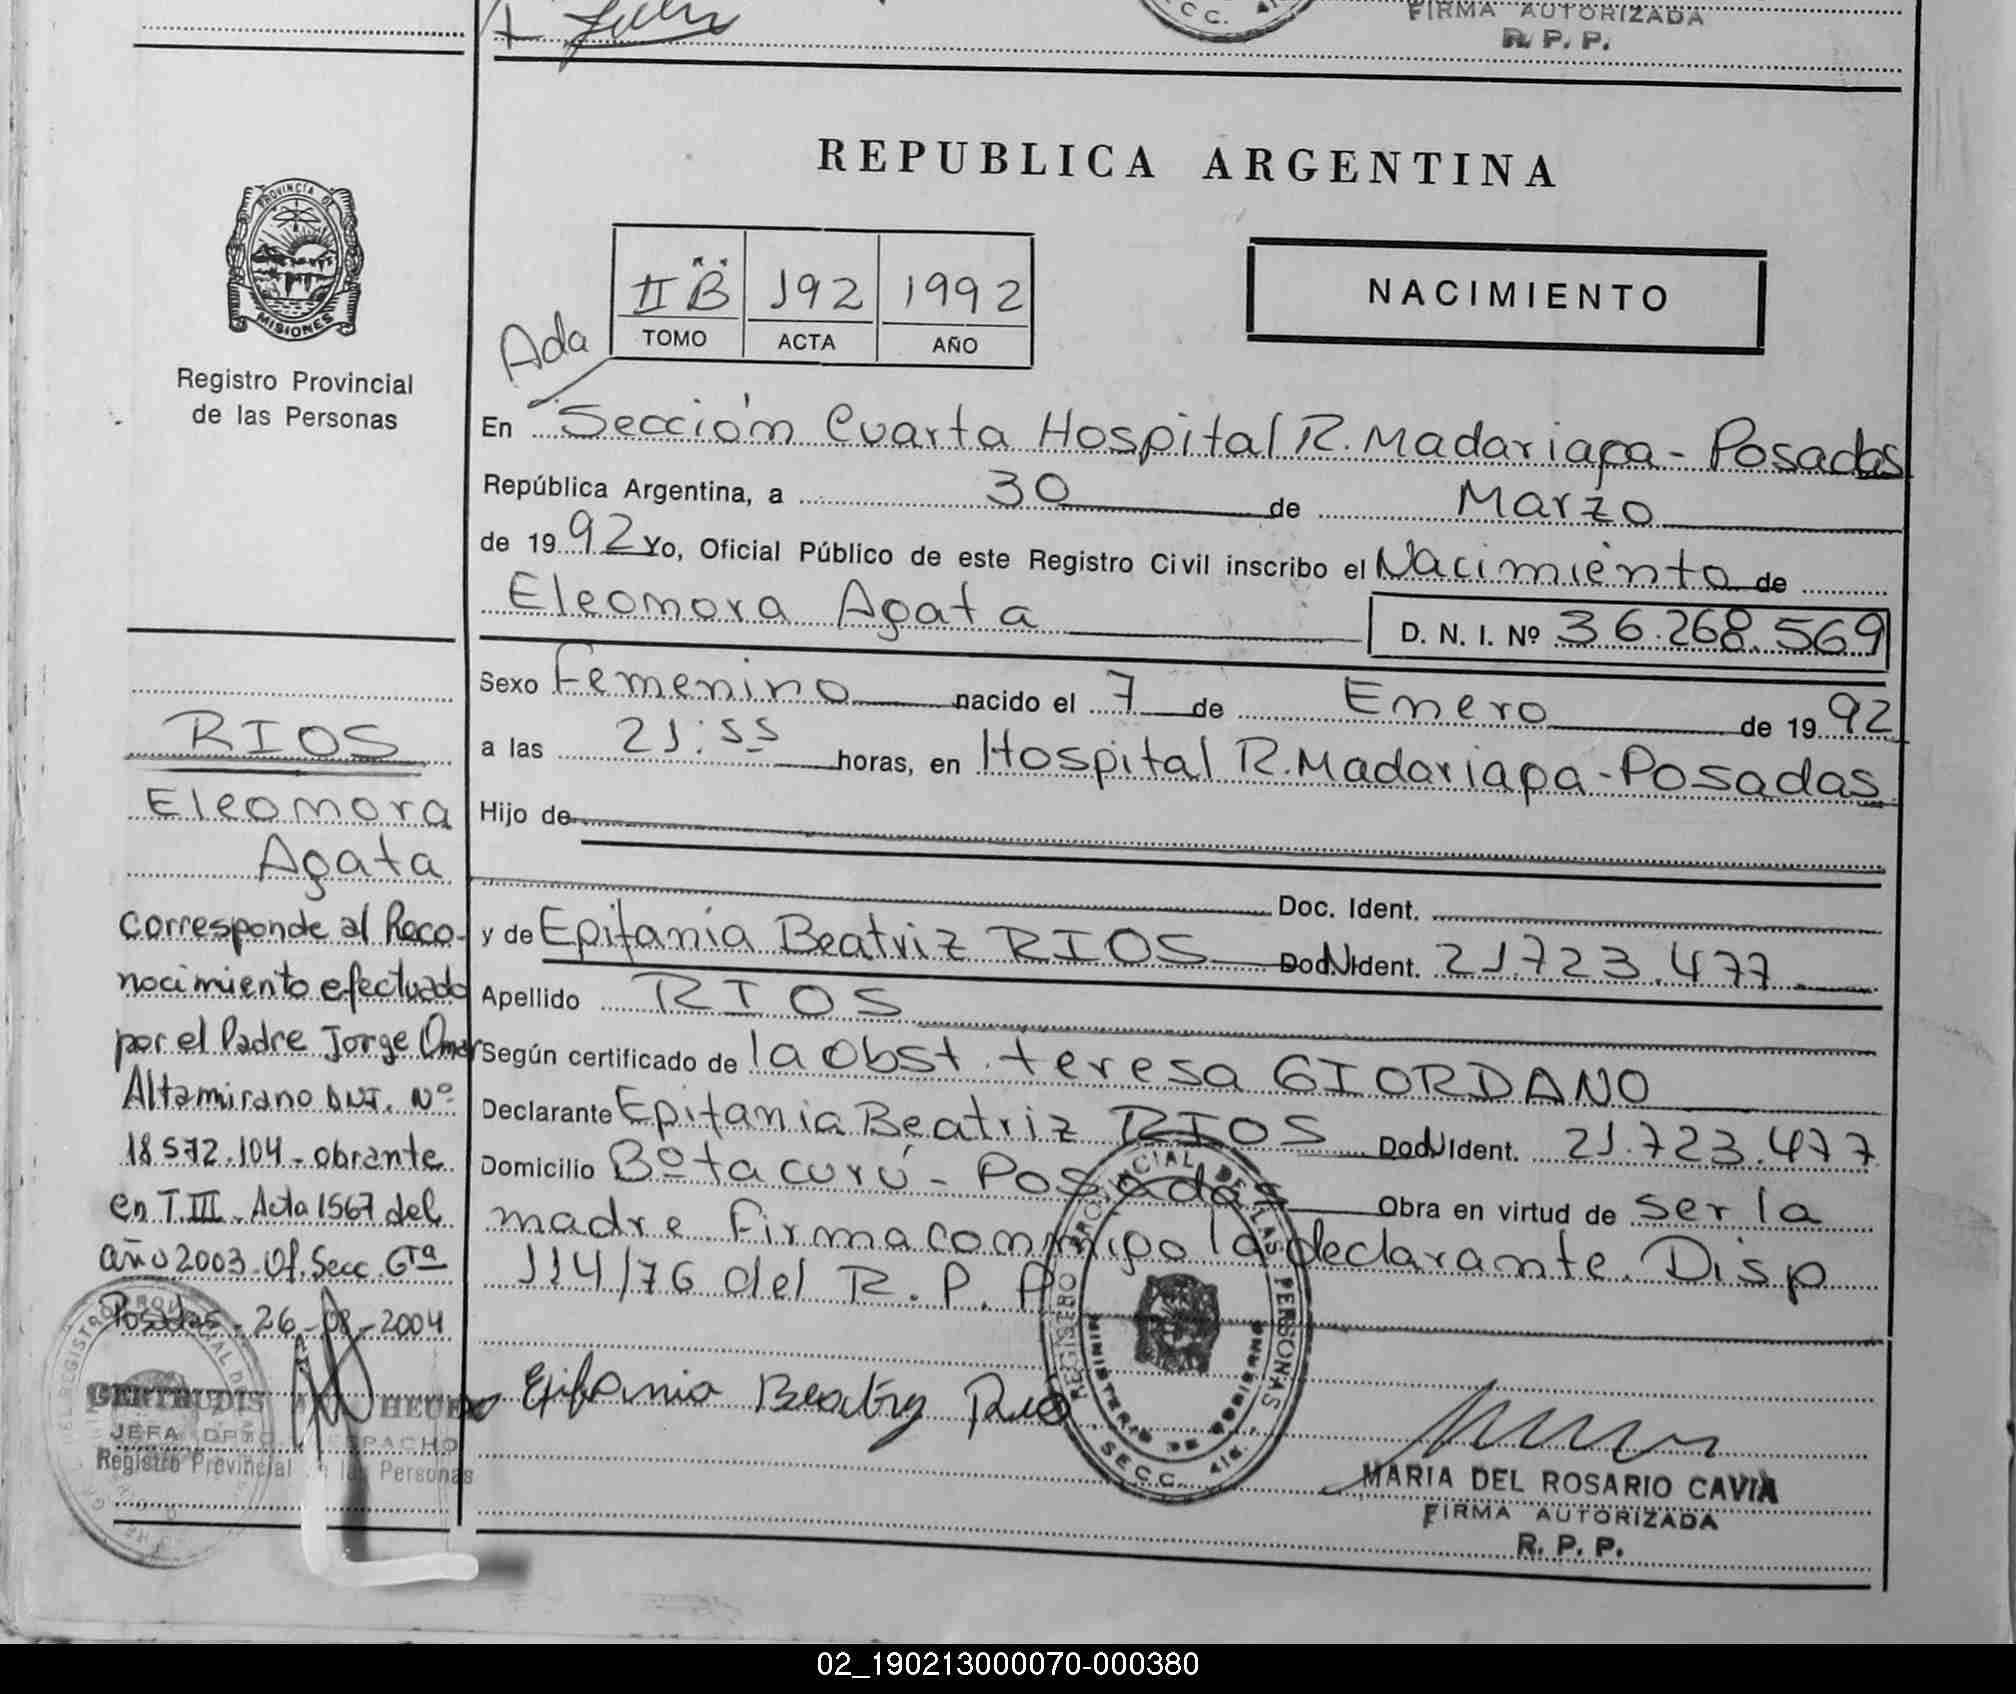 FIRMA AUTORIZADA
R. P. P.
REPUBLICA ARGENTINA
PROVINCIA DE
MISIONES
Registro Provincial
de las Personas
II "B" 192 1992
TOMO ACTA AÑO
NACIMIENTO
Ada
En Sección Cuarta Hospital R. Madariaga - Posadas
República Argentina, a 30 de Marzo
de 1992 Yo, Oficial Público de este Registro Civil inscribo el Nacimiento de
Eleonora Agata
D. N. I. Nº 36.268.569
Sexo Femenino nacido el 7 de Enero de 1992
a las 21:55 horas, en Hospital R. Madariaga - Posadas
Hijo de
Doc. Ident.
y de Epifania Beatriz RIOS Doc. Ident. 21.723.477
Apellido RIOS
Según certificado de la Obst. teresa GIORDANO
Declarante Epifania Beatriz RIOS Doc. Ident. 21.723.477
Domicilio Bº tacurú - Posadas Obra en virtud de ser la
madre. Firma conmigo la declarante. Disp
114/76 del R. P. P.
Epifania Beatriz Rios
REGISTRO PROVINCIAL DE LAS PERSONAS
MINISTERIO DE GOBIERNO
SECC. 4ta.
MARIA DEL ROSARIO CAVIA
FIRMA AUTORIZADA
R. P. P.
RIOS
Eleonora
Agata
corresponde al Reco-
nocimiento efectuado
por el Padre Jorge Omar
Altamirano DNI. Nº
18.572.104 - obrante
en T. III - Acta 1567 del
año 2003 - Of. Secc. 6ta
Posadas - 26-08-2004
GERTRUDIS
JEFA DPTO. DESPACHO
Registro Provincial de las Personas
02_190213000070-000380